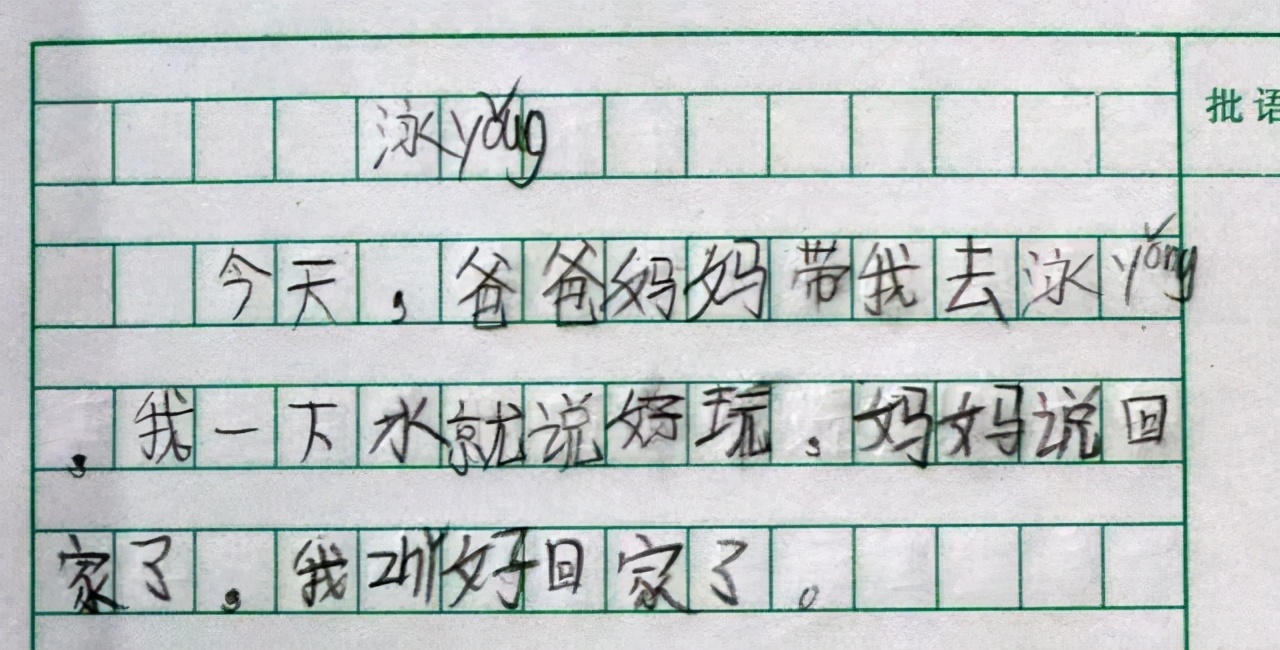 批语
泳yǒng
今天,爸爸妈妈带我去泳yǒng
,我一下水就说好玩,妈妈说回
家了,我zhǐ好回家了。